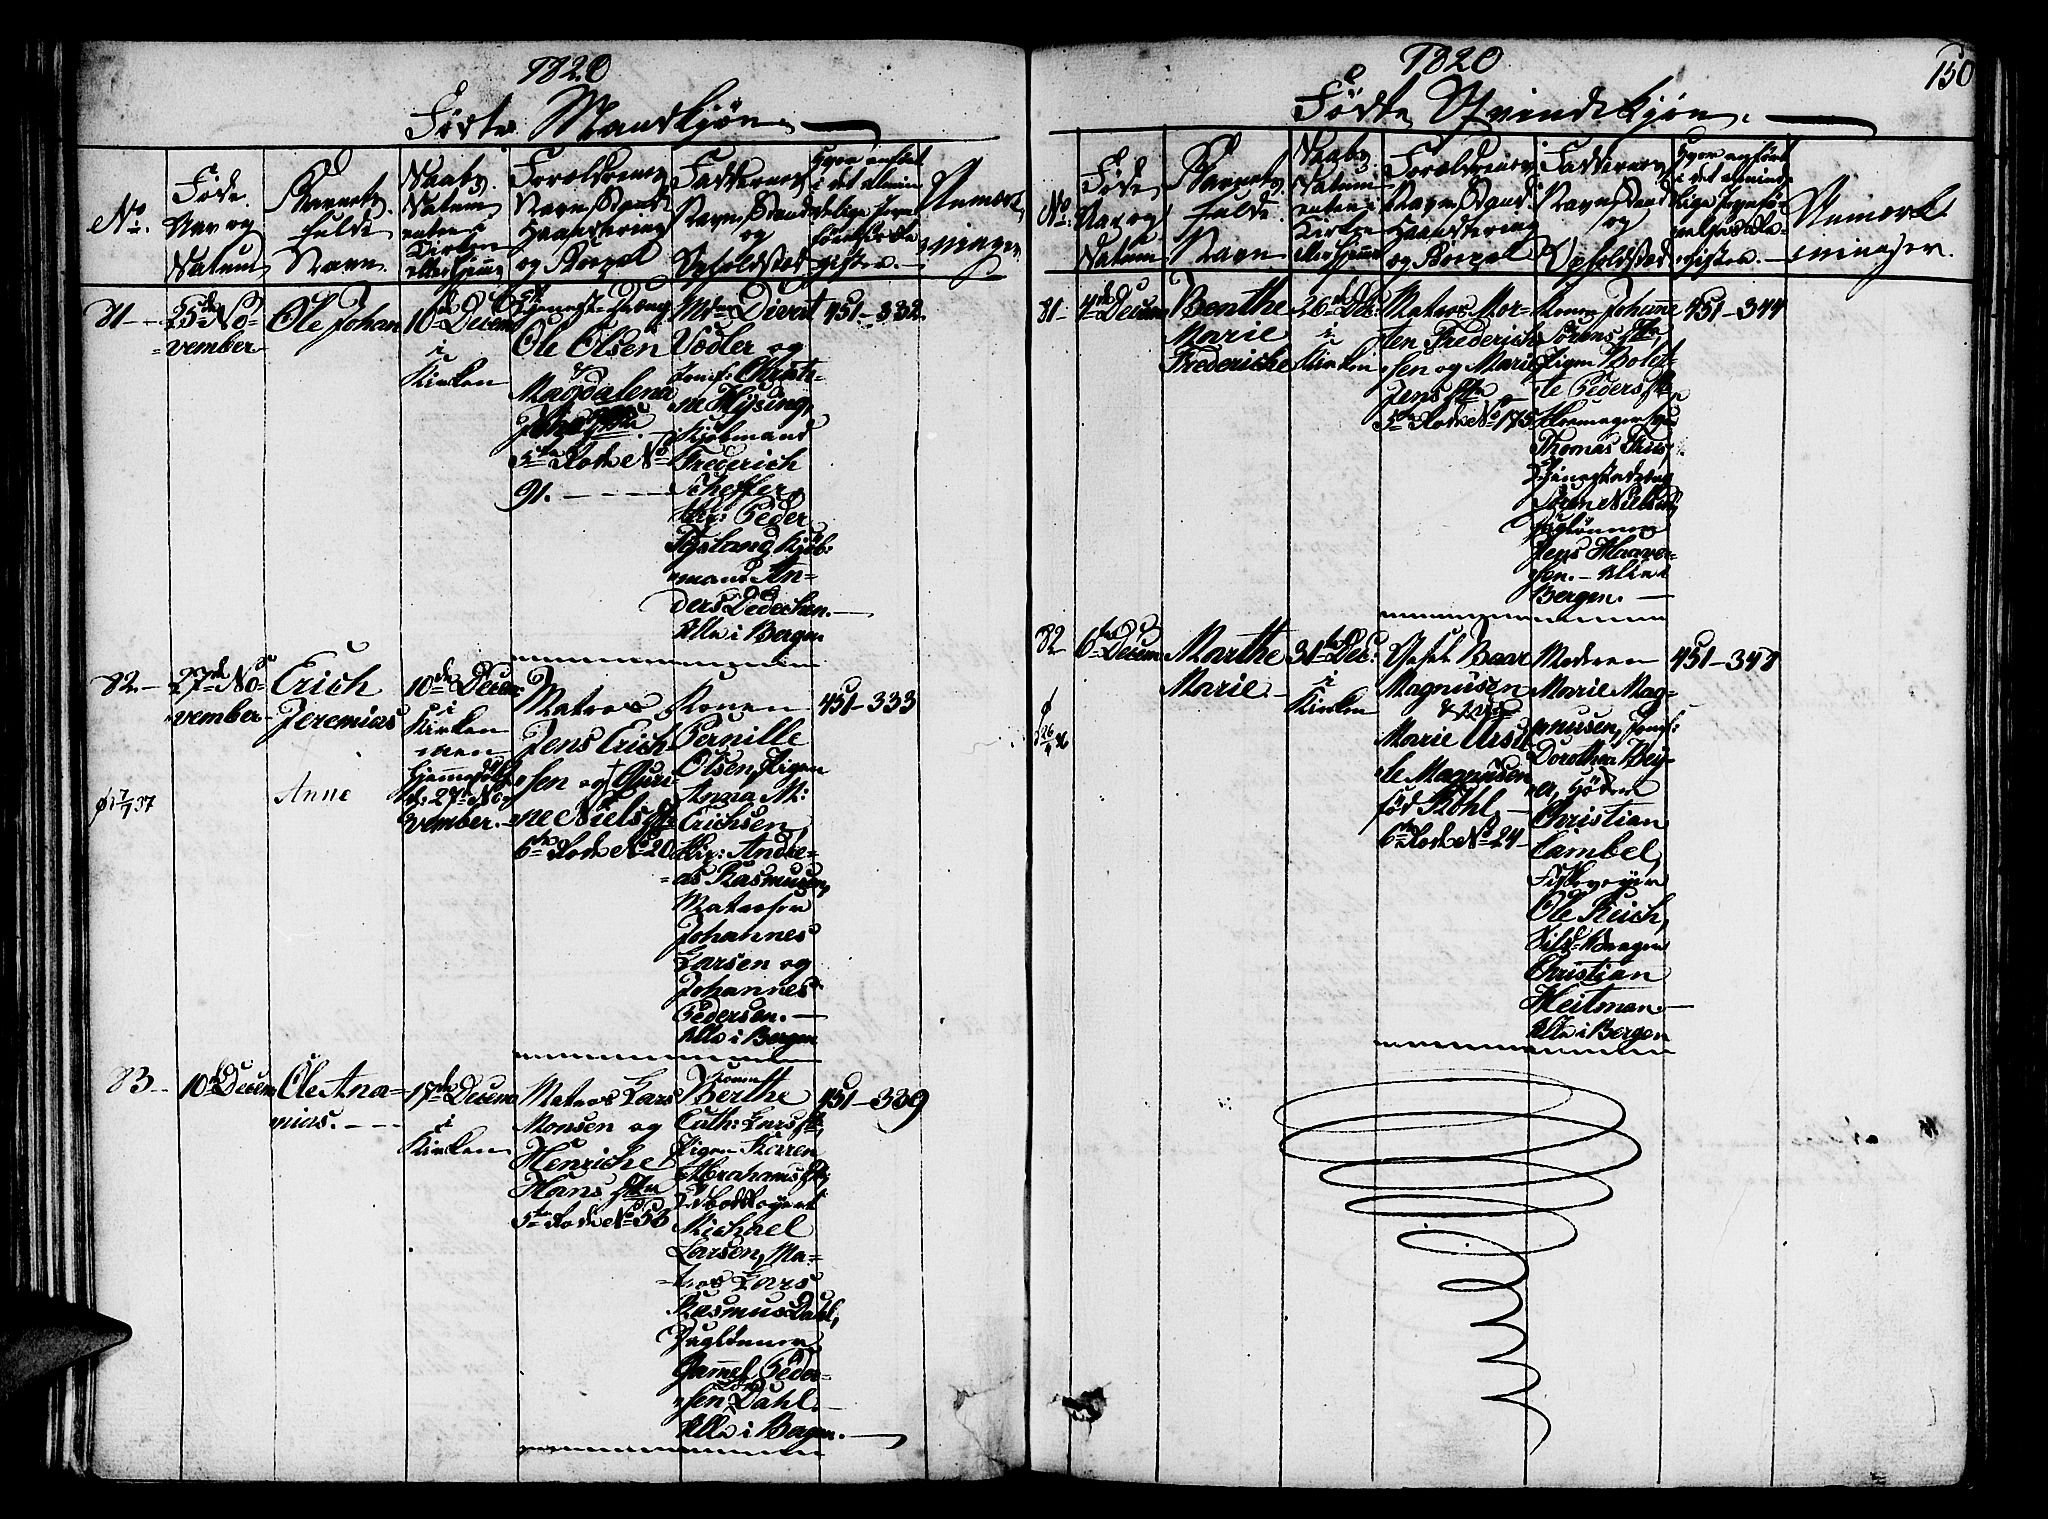 1820
Fødte Mandkjøn.
No.
Føde
Dag og
Datum
Barnets
fulde
Navn.
Daabs
Datum
enten i
Kirken
eller hjemme
Forældrenes
Navn, Stand
Haandtering
og Bopæl
Faddernes
Navn, Stand
og
Opholdsted
Hvor anført
i det almin
delige Jevn
førelses Re
gister.
Anmærk
ninger
81
25de No=
vember
Ole Johan
10de Decem
i
Kirken
Ole Olsen og
Magdalena
5te Rode No
91.
Md: Divert
Vedler og
Jomf: Christi=
ne Hysing,
Kjøbmand
Frederich
Scheffer,
Hr: Peder
Kjøb=
mand An=
ders Dedechen.
Alle i Bergen.
451-332.
82.
27de No=
vember
Erich
Jeremias
Anne
10de Decem
i
Kirken
men
hjemmedøbt
d: 27de No=
vember.
Matros
Jens Erich
sen og Guri=
ne Niels Dtr
6te Rode No 20
Konen
Pernille
Olsen, Pigen
Anna M:
Erichsen,
Hr: Andre=
as Rasmusen,
Matroser
Johannes
Larsen og
Johannes
Pedersen.
Alle i Bergen
451-333
83.
10de Decem
Ole Ana=
nias.
17de Decem
i
Kirken
Matros Lars
Monsen og
Henriche
Hans Dtr
5te Rode No 53
Konen
Berthe
Cath: Lars Dtr,
Pigen Karen
Abrahams Dtr
Michael
Larsen, Ma=
tros Lars
Rasmus Dahl,
Daglønner
Gammel Peder=
sen Dahl.
Alle i Bergen.
451-339
1820
150
Fødte Qvindekjøn.
No.
Føde
Dag og
Datum
Barnets
fulde
Navn
Daabs
Datum
enten i
Kirken
eller hjemme
Forældrenes
Navn, Stand
Haandtering
og Bopæl
Faddernes
Navn, Stand
og
Opholdsted
Hvor anført
i det alminde
lige Jevnfø
relses Re
gister.
Anmærk
ninger.
81
4de Decem
Benthe
Marie
Frederiche
26de Dec:
i
Kirken
Matros Mor=
ten Frederich
sen og Marie
Jens Dtr
5te Rode No 175
Konen Johanne
Sørens Dtr,
Pigen Bolet=
te Peders Dtr
Skomager
Thomas Friis,
Søren Nielsen,
Daglønner
Jens Haaver=
sen. Alle i
Bergen.
451-344
82
6te Decem
Marthe
Marie.
31te Dec:
i
Kirken
Magnusen
Marie Ursu
le Magnusen
fød Bøhl.
6te Rode No 24
Moderen
Marie Mag=
nusen, Jomf:
Dorothea Bey=
er,
Christian
Cambel,
Ole Reich,
Christian
Heitman.
Alle i Bergen
451-348